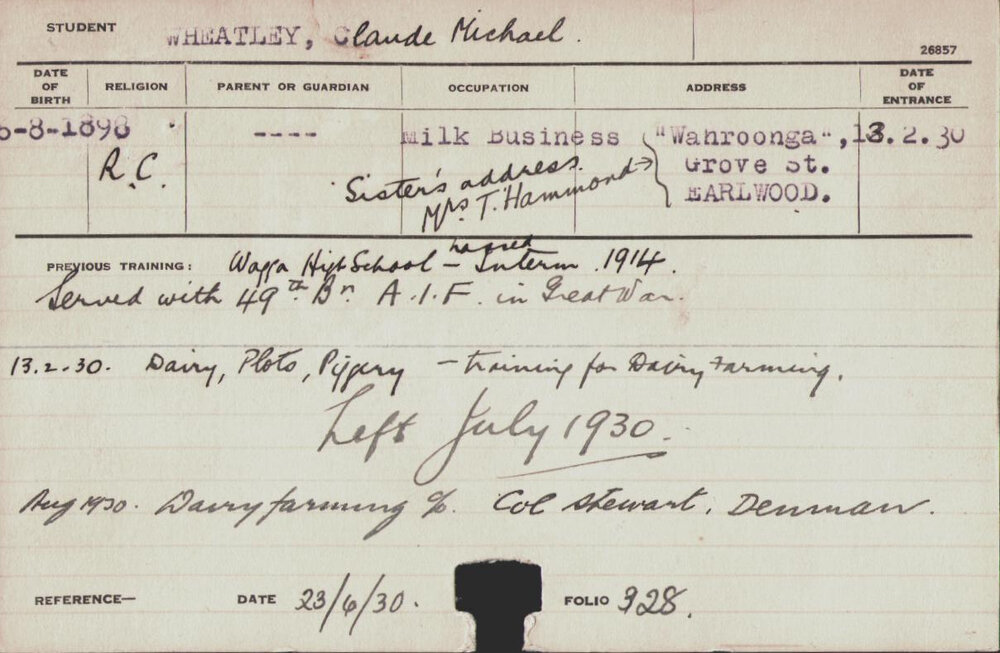 STUDENT WHEATLEY, Claude Michael.
26857
DATE OF BIRTH RELIGION PARENT OR GUARDIAN OCCUPATION ADDRESS DATE OF ENTRANCE
5-8-1898 ---- Milk Business "Wahroonga", 13.2.30
R.C. Sister's address. Grove St.
Mrs T. Hammond → EARLWOOD.
passed
PREVIOUS TRAINING: Wagga High School – Interm. 1914.
Served with 49th Bn. A.I.F. in Great War.
13.2.30. Dairy, Plots, Piggery – training for Dairy Farming.
Left July 1930.
Aug 1930. Dairy farming c/o. Col Stewart, Denman.
REFERENCE— DATE 23/6/30. FOLIO 328.